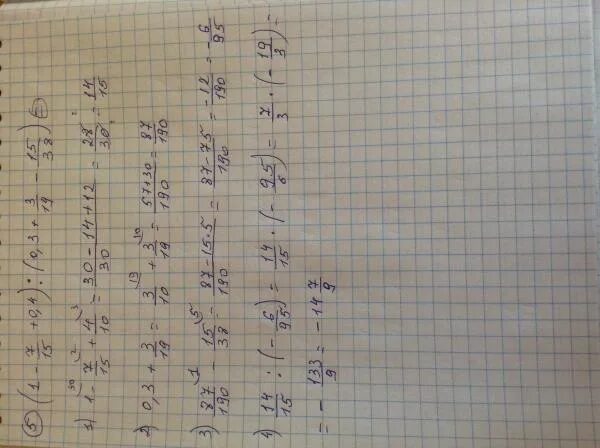 5 (1 - 7/15 + 0,4) : (0,3 + 3/19 - 15/38) =
1) 1 - 7/15 + 4/10 = (30 - 14 + 12)/30 = 28/30 = 14/15
2) 0,3 + 3/19 = 3/10 + 3/19 = (57 + 30)/190 = 87/190
3) 87/190 - 15/38 = (87 - 15·5)/190 = (87 - 75)/190 = -12/190 = -6/95
4) 14/15 : (-6/95) = 14/15 · (-95/6) = 7/3 · (-19/3) =
= -133/9 = -14 7/9